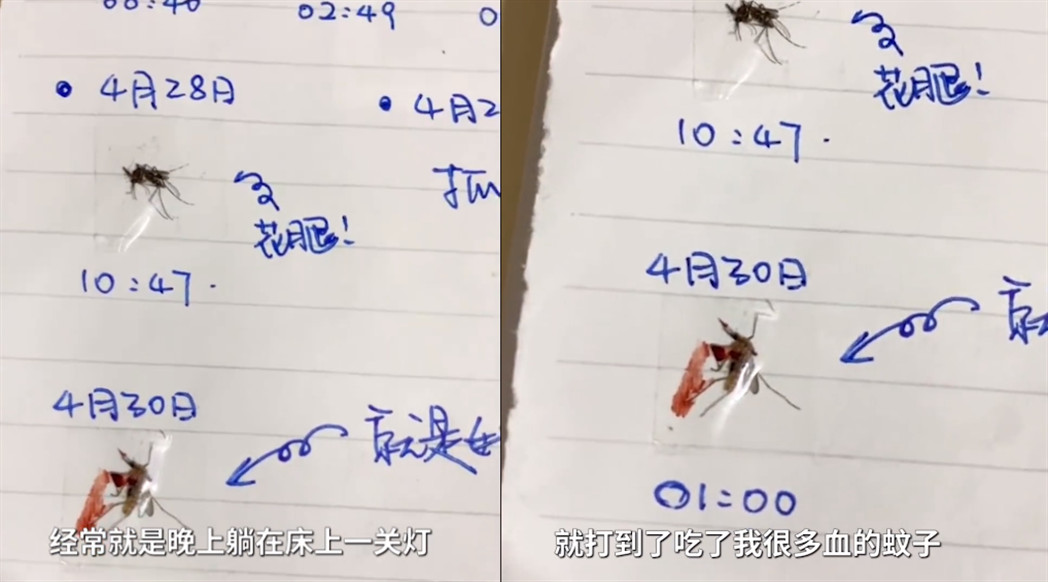 02:49
• 4月28日
• 4月2
花腿！
10:47.
4月30日
就是
经常就是晚上躺在床上一关灯
花腿！
10:47.
4月30日
01:00
就打到了吃了我很多血的蚊子